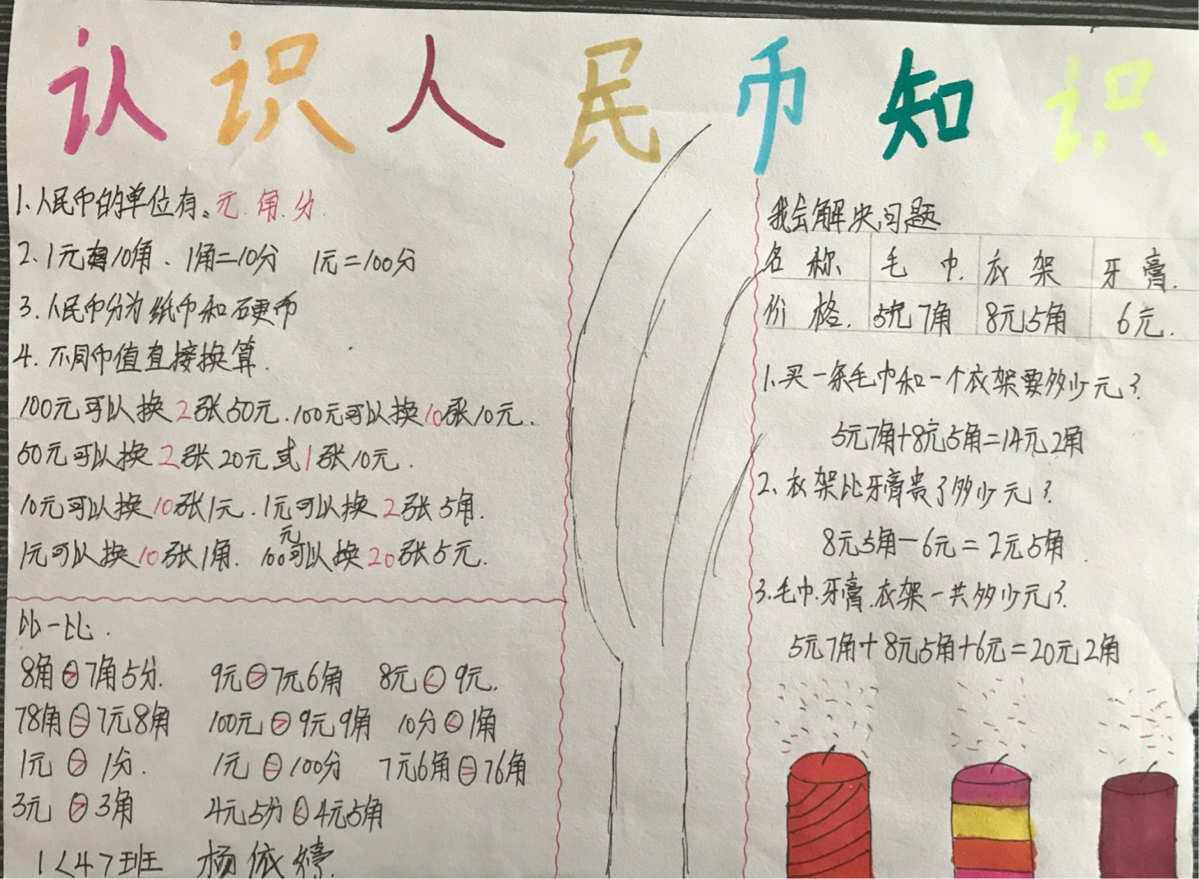 认识人民币知识
1、人民币的单位有:元.角.分.
2、1元=10角、1角=10分 1元=100分
3、人民币分为纸币和硬币
4、不同币值直接换算.
100元可以换2张50元.100元可以换10张10元.
50元可以换2张20元或1张10元.
10元可以换10张1元.1元可以换2张5角.
1元可以换10张1角.100元可以换20张5元.
比一比.
8角>7角5分. 9元>7元6角 8元<9元.
78角=7元8角 100元>9元9角 10分<1角
1元>1分. 1元=100分 7元6角=76角
3元>3角 4元5分<4元5角
1<4>班 杨依婷
我会解决问题
名称. 毛巾. 衣架 牙膏.
价格. 5元7角 8元5角 6元.
1.买一条毛巾和一个衣架要多少元?
5元7角+8元5角=14元2角
2、衣架比牙膏贵了多少元?
8元5角-6元=2元5角
3.毛巾.牙膏.衣架一共多少元?
5元7角+8元5角+6元=20元2角